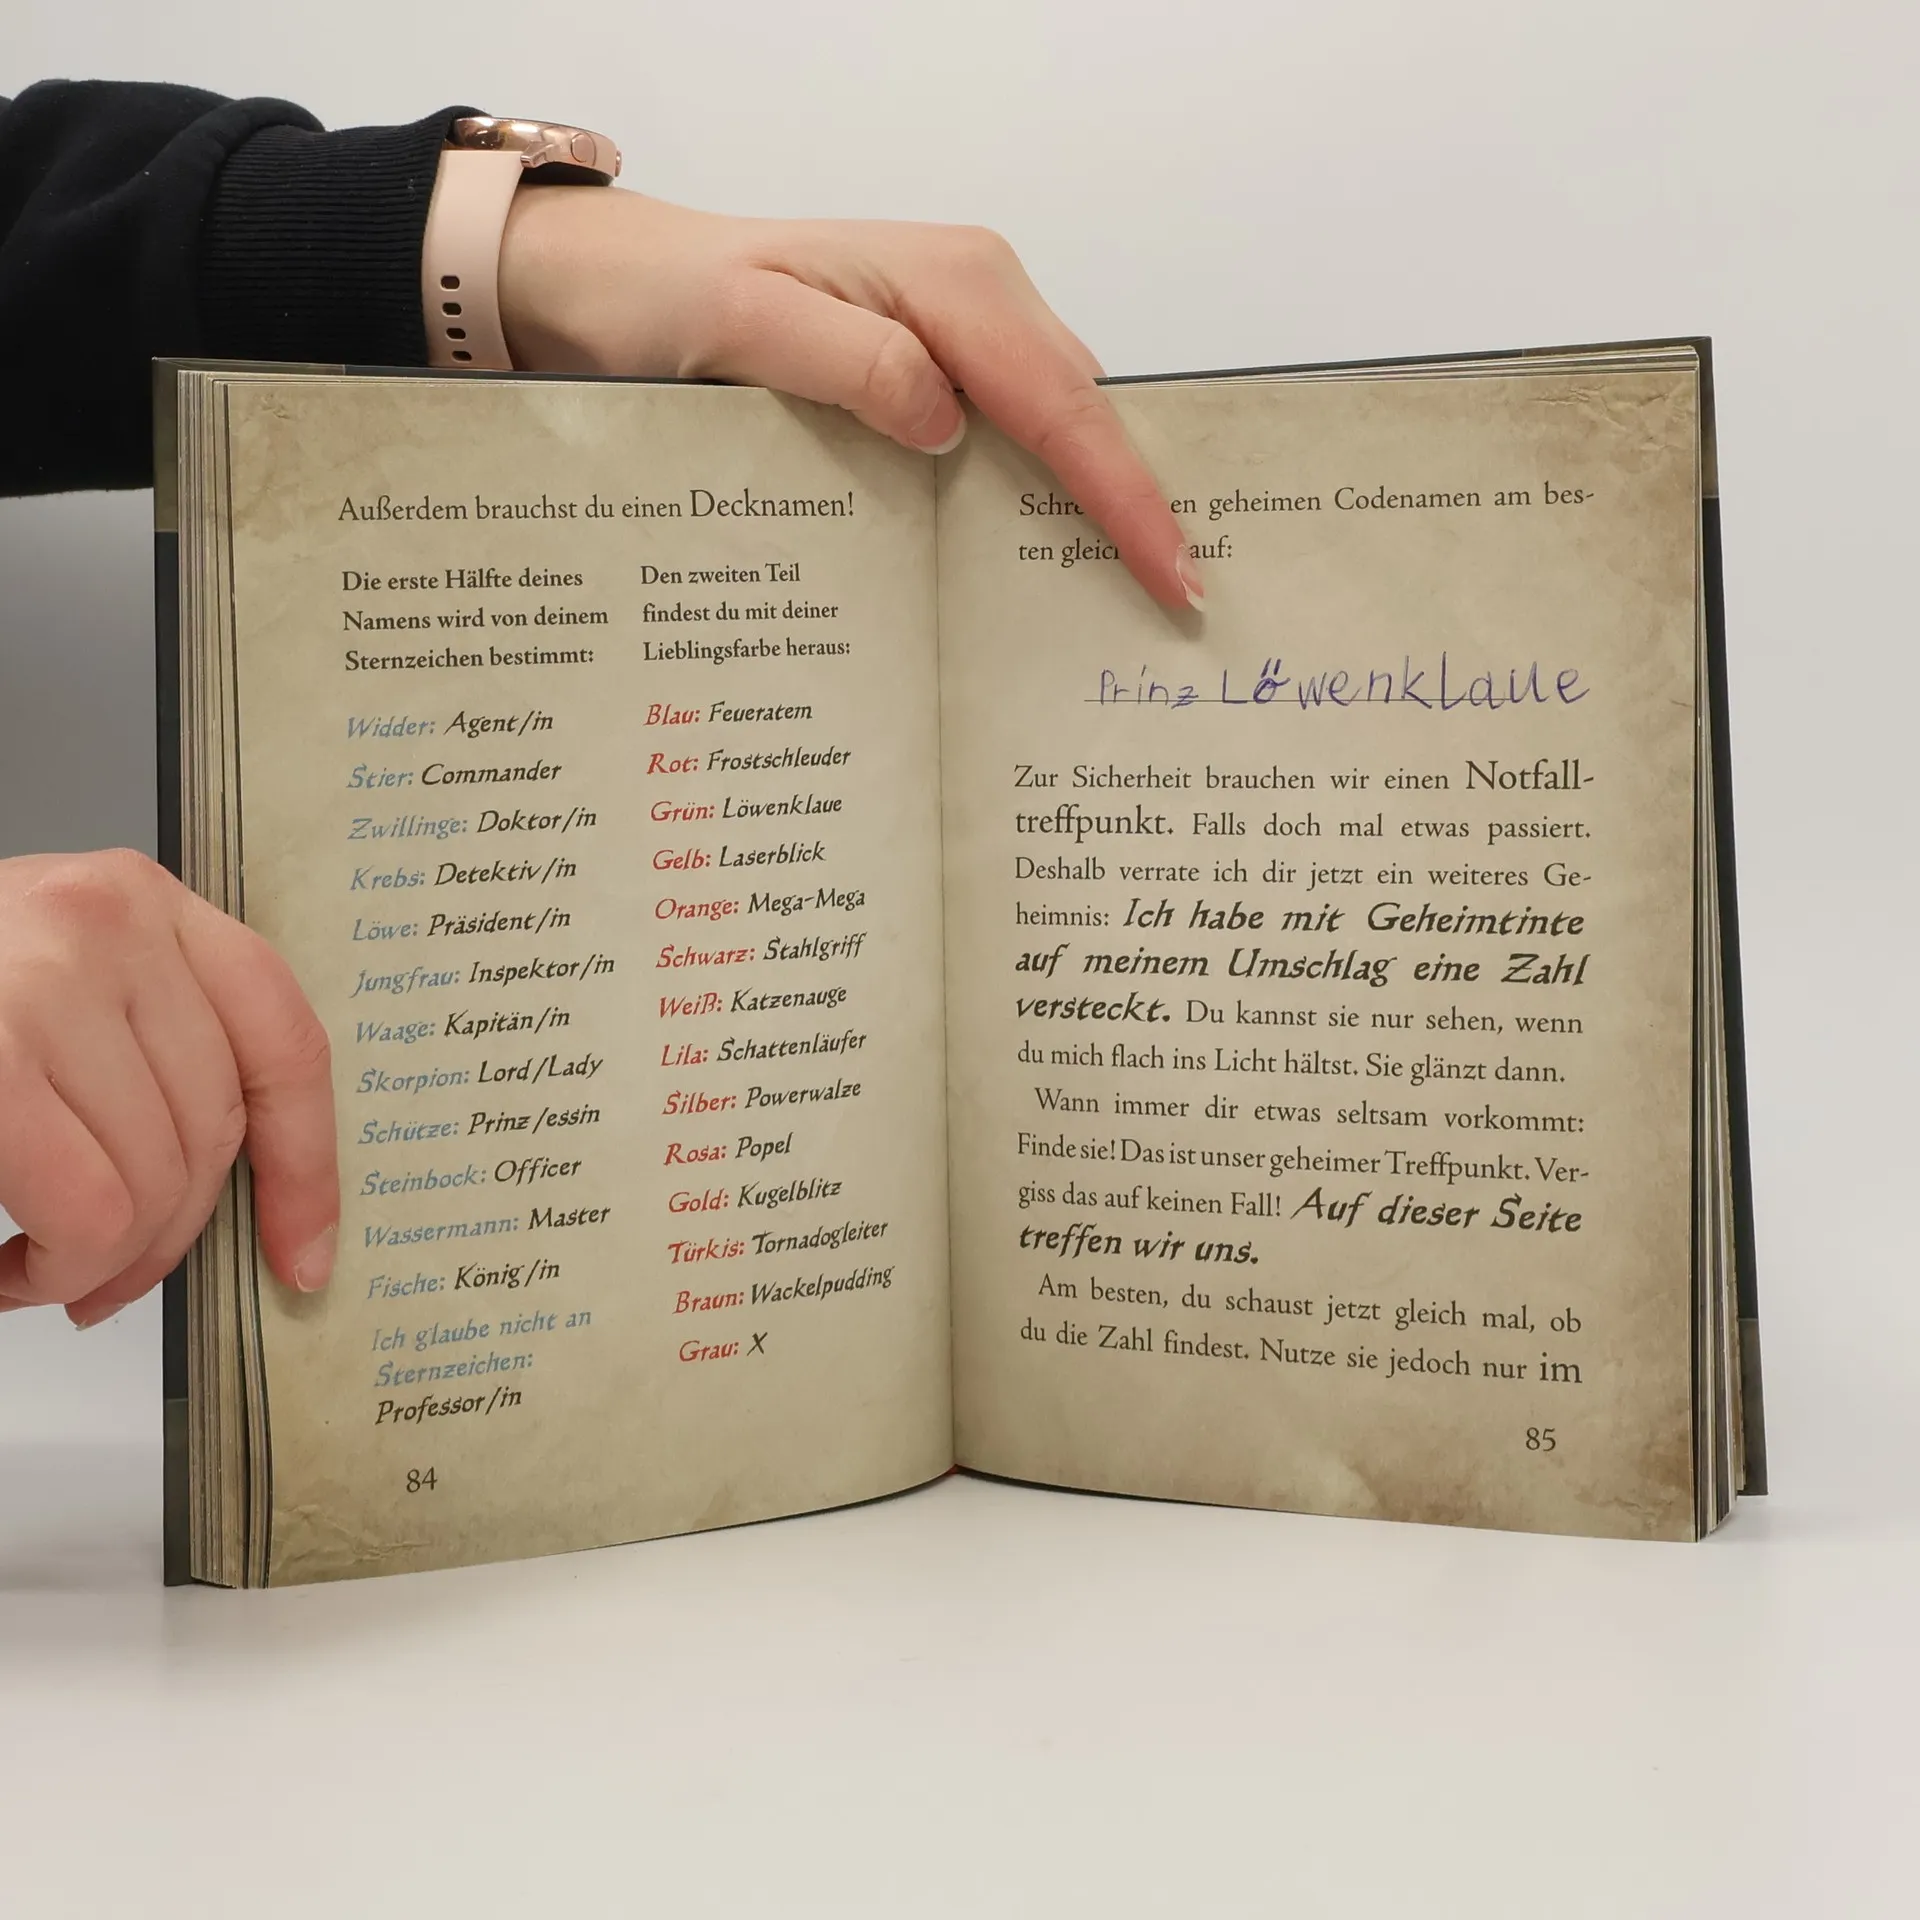 Außerdem brauchst du einen Decknamen!
Die erste Hälfte deines
Namens wird von deinem
Sternzeichen bestimmt:
Widder: Agent/in
Stier: Commander
Zwillinge: Doktor/in
Krebs: Detektiv/in
Löwe: Präsident/in
Jungfrau: Inspektor/in
Waage: Kapitän/in
Skorpion: Lord/Lady
Schütze: Prinz/essin
Steinbock: Officer
Wassermann: Master
Fische: König/in
Ich glaube nicht an
Sternzeichen:
Professor/in
Den zweiten Teil
findest du mit deiner
Lieblingsfarbe heraus:
Blau: Feueratem
Rot: Frostschleuder
Grün: Löwenklaue
Gelb: Laserblick
Orange: Mega-Mega
Schwarz: Stahlgriff
Weiß: Katzenauge
Lila: Schattenläufer
Silber: Powerwalze
Rosa: Popel
Gold: Kugelblitz
Türkis: Tornadogleiter
Braun: Wackelpudding
Grau: X
84
geheimen Codenamen am bes-
ten auf:
Prinz Löwenklaue
Zur Sicherheit brauchen wir einen Notfall-
treffpunkt. Falls doch mal etwas passiert.
Deshalb verrate ich dir jetzt ein weiteres Ge-
heimnis: Ich habe mit Geheimtinte
auf meinem Umschlag eine Zahl
versteckt. Du kannst sie nur sehen, wenn
du mich flach ins Licht hältst. Sie glänzt dann.
Wann immer dir etwas seltsam vorkommt:
Finde sie! Das ist unser geheimer Treffpunkt. Ver-
giss das auf keinen Fall! Auf dieser Seite
treffen wir uns.
Am besten, du schaust jetzt gleich mal, ob
du die Zahl findest. Nutze sie jedoch nur im
85